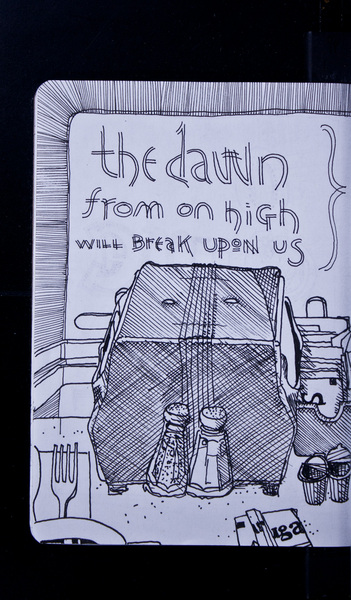 the dawn
from on high
will Break upon us